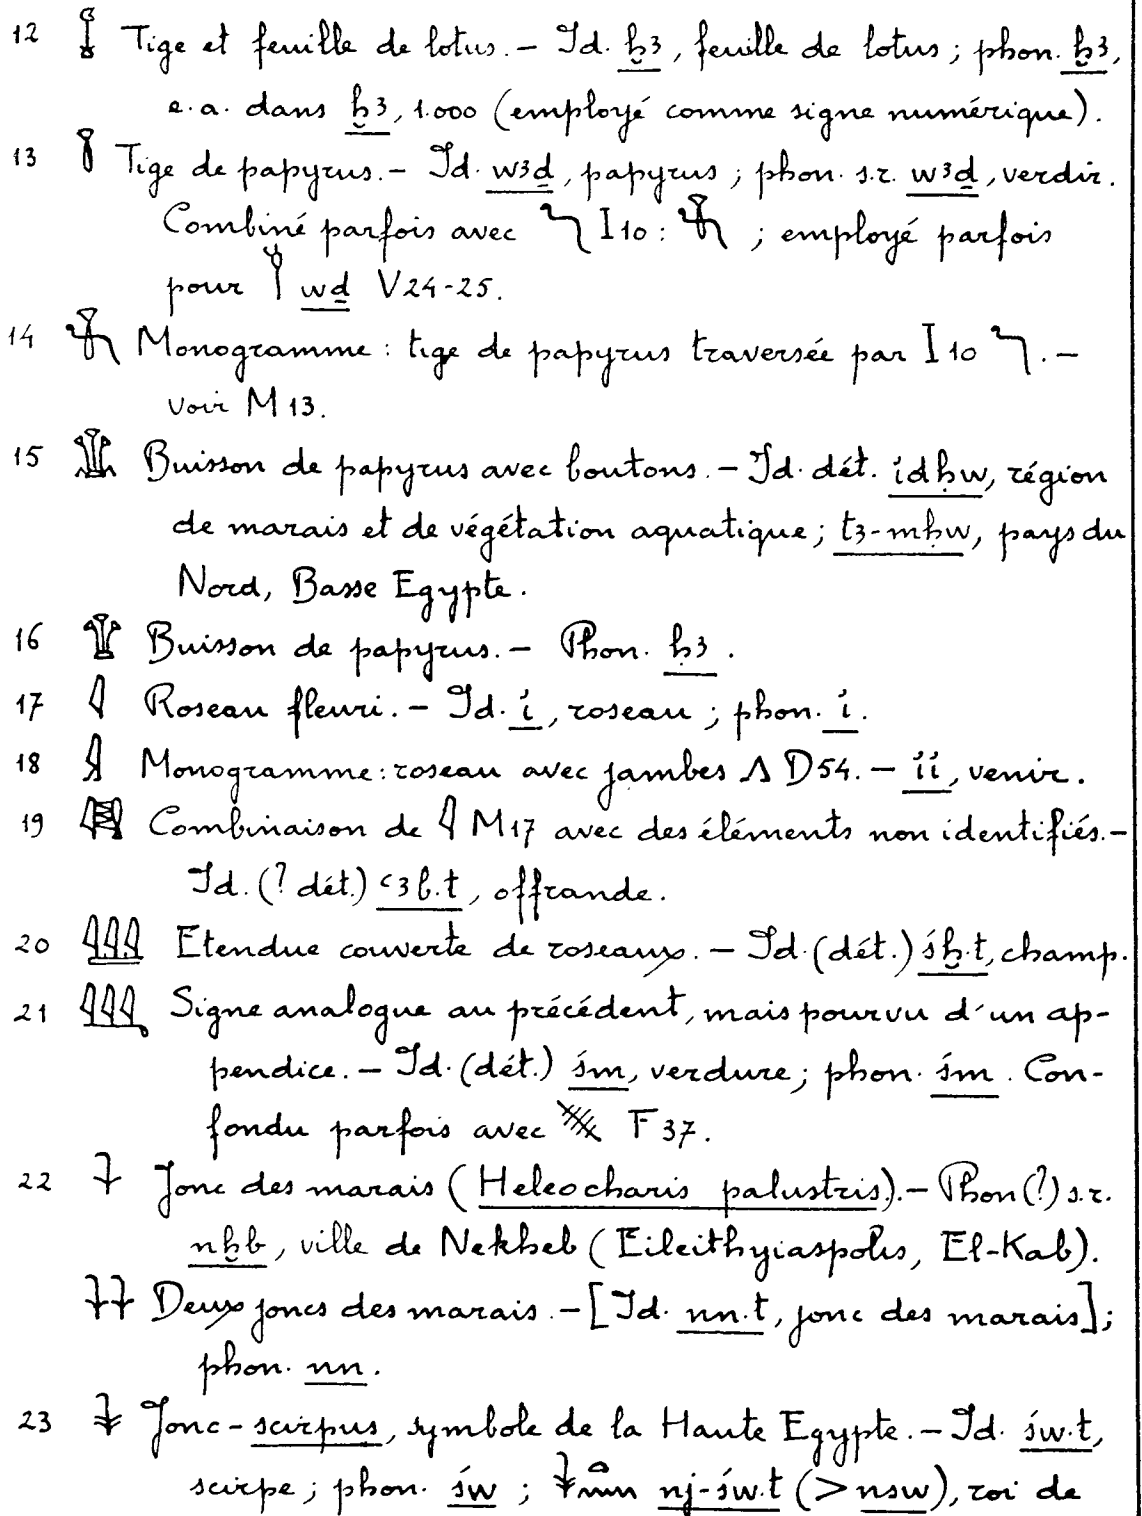 12 𓆼 Tige et feuille de lotus. – Id. ḫ3, feuille de lotus ; phon. ḫ3,
e.a. dans ḫ3, 1.000 (employé comme signe numérique).
13 𓇅 Tige de papyrus. – Id. w3ḏ, papyrus ; phon. s.r. w3ḏ, verdir.
Combiné parfois avec 𓆓 I 10 : 𓇆 ; employé parfois
pour 𓎗 wḏ V 24-25.
14 𓇆 Monogramme : tige de papyrus traversée par I 10 𓆓. –
voir M 13.
15 𓇇 Buisson de papyrus avec boutons. – Id. dét. idḥw, région
de marais et de végétation aquatique ; t3-mḥw, pays du
Nord, Basse Egypte.
16 𓇉 Buisson de papyrus. – Phon. ḥ3.
17 𓇋 Roseau fleuri. – Id. i, roseau ; phon. i.
18 𓇍 Monogramme : roseau avec jambes 𓂻 D 54. – ii, venir.
19 𓇎 Combinaison de 𓇋 M 17 avec des éléments non identifiés. –
Id. (? dét.) ꜥ3b.t, offrande.
20 𓇏 Etendue couverte de roseaux. – Id. (dét.) śḫ.t, champ.
21 𓇑 Signe analogue au précédent, mais pourvu d'un ap-
pendice. – Id. (dét.) śm, verdure ; phon. śm. Con-
fondu parfois avec 𓄫 F 37.
22 𓇒 Jonc des marais (Heleocharis palustris). – Phon (?) s.r.
nḫb, ville de Nekheb (Eileithyiaspolis, El-Kab).
𓇒𓇒 Deux joncs des marais. – [Id. nn.t, jonc des marais] ;
phon. nn.
23 𓇓 Jonc-scirpus, symbole de la Haute Egypte. – Id. św.t,
scirpe ; phon. św ; 𓇓𓏏𓈖 nj-św.t (> nsw), roi de